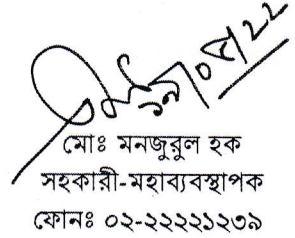 মোঃ মনজুরুল হক
সহকারী-মহাব্যবস্থাপক
ফোনঃ ০২-২২২২১২৩৯